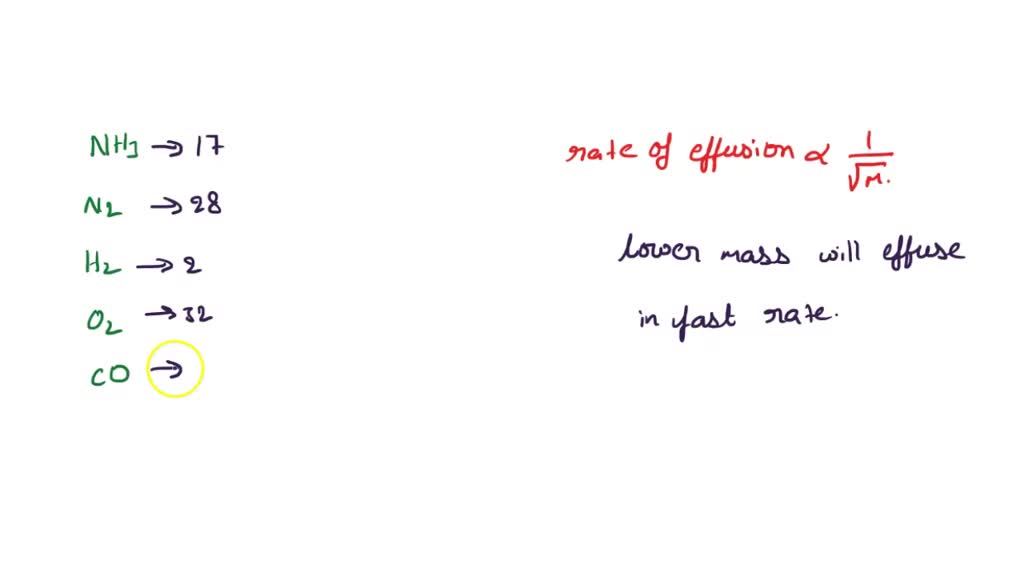 NH3 → 17
N2 → 28
H2 → 2
O2 → 32
CO →
rate of effusion ∝ 1/√M.
lower mass will effuse
in fast rate.